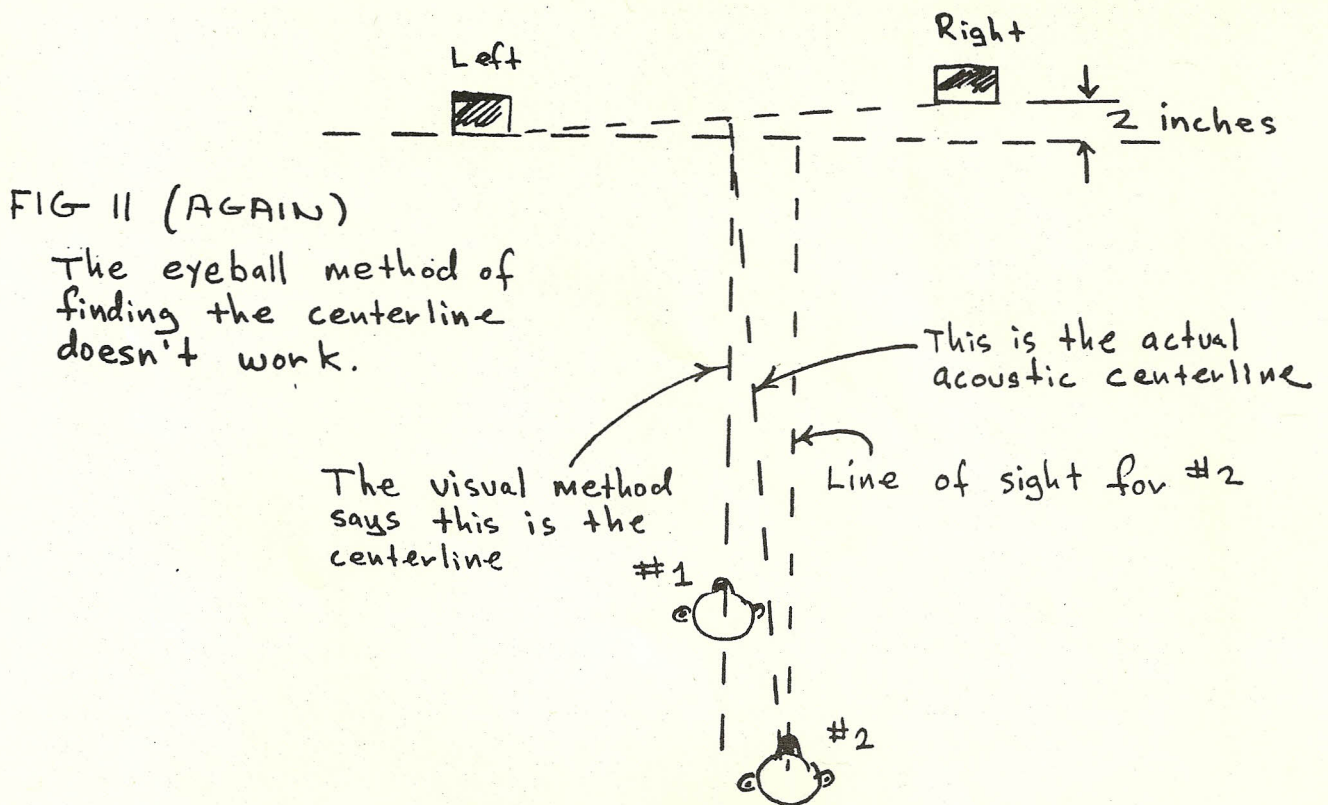 Left
Right
2 inches
FIG 11 (AGAIN)
The eyeball method of
finding the centerline
doesn't work.
This is the actual
acoustic centerline
The visual method
says this is the
centerline
Line of sight for #2
#1
#2